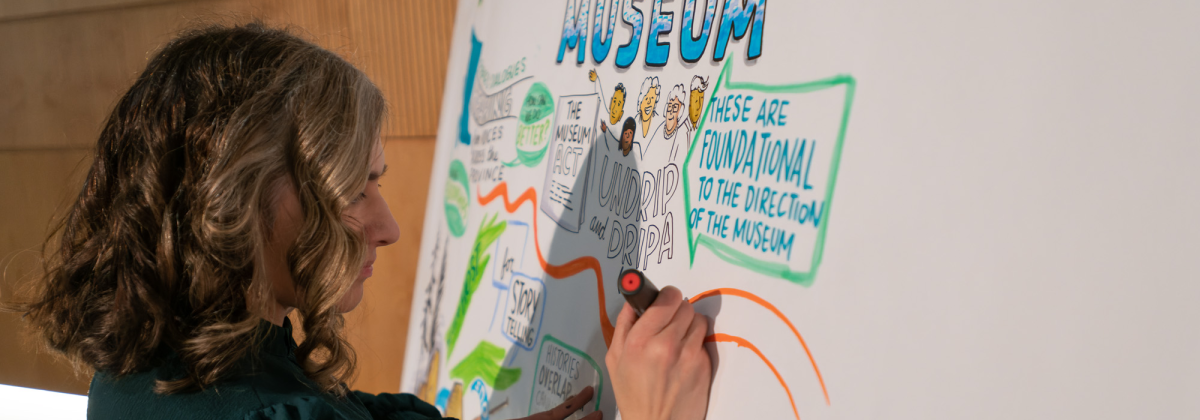 MUSEUM
DIALOGUE'S
VOICES
THE
PROVINCE
BETTER?
THE
MUSEUM
ACT
UNDRIP
and
DRIPA
THESE ARE
FOUNDATIONAL
TO THE DIRECTION
OF THE MUSEUM
for
STORY
TELLING
HISTORIES
OVERLAP